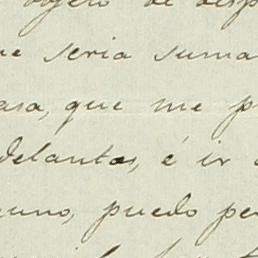 objeto de desp
ue seria suma
asa, que me p
delantos, é ir a
uno, puedo pe